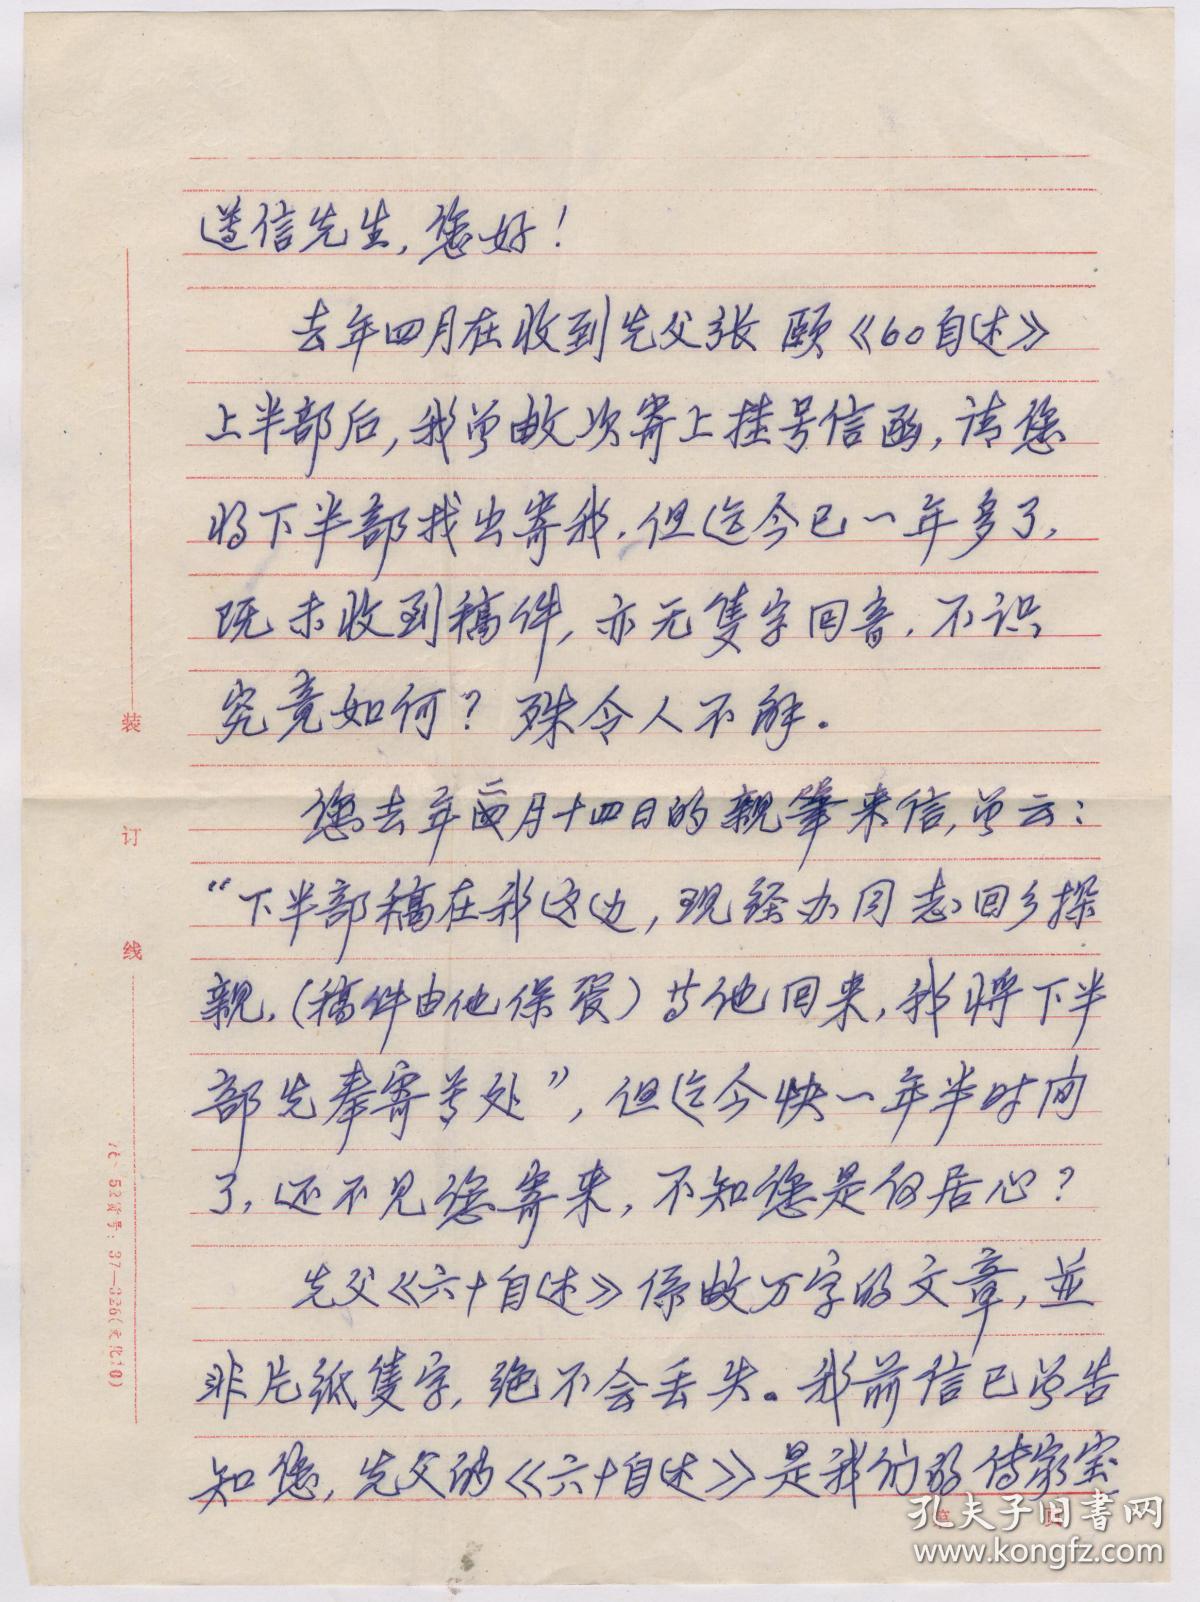 道信先生,您好!
去年四月在收到先父张颐《60自述》
上半部后,我曾数次寄上挂号信函,请您
将下半部找出寄我.但迄今已一年多了,
既未收到稿件,亦无隻字回音.不识
究竟如何?殊令人不解。
您去年二月十四日的親筆来信,曾云:
“下半部稿在我这边,现经办同志回乡探
親,(稿件由他保管)等他回来,我将下半
部先奉寄等处”,但迄今快一年半时间
了,还不见您寄来,不知您是何居心?
先父《六十自述》係数万字的文章,並
非片纸隻字,绝不会丢失。我前信已曾告
知您,先父的《六十自述》是我们的传家宝
装
订
线
52货号:37—326(文化10)
第 页
孔夫子旧书网
www.kongfz.com